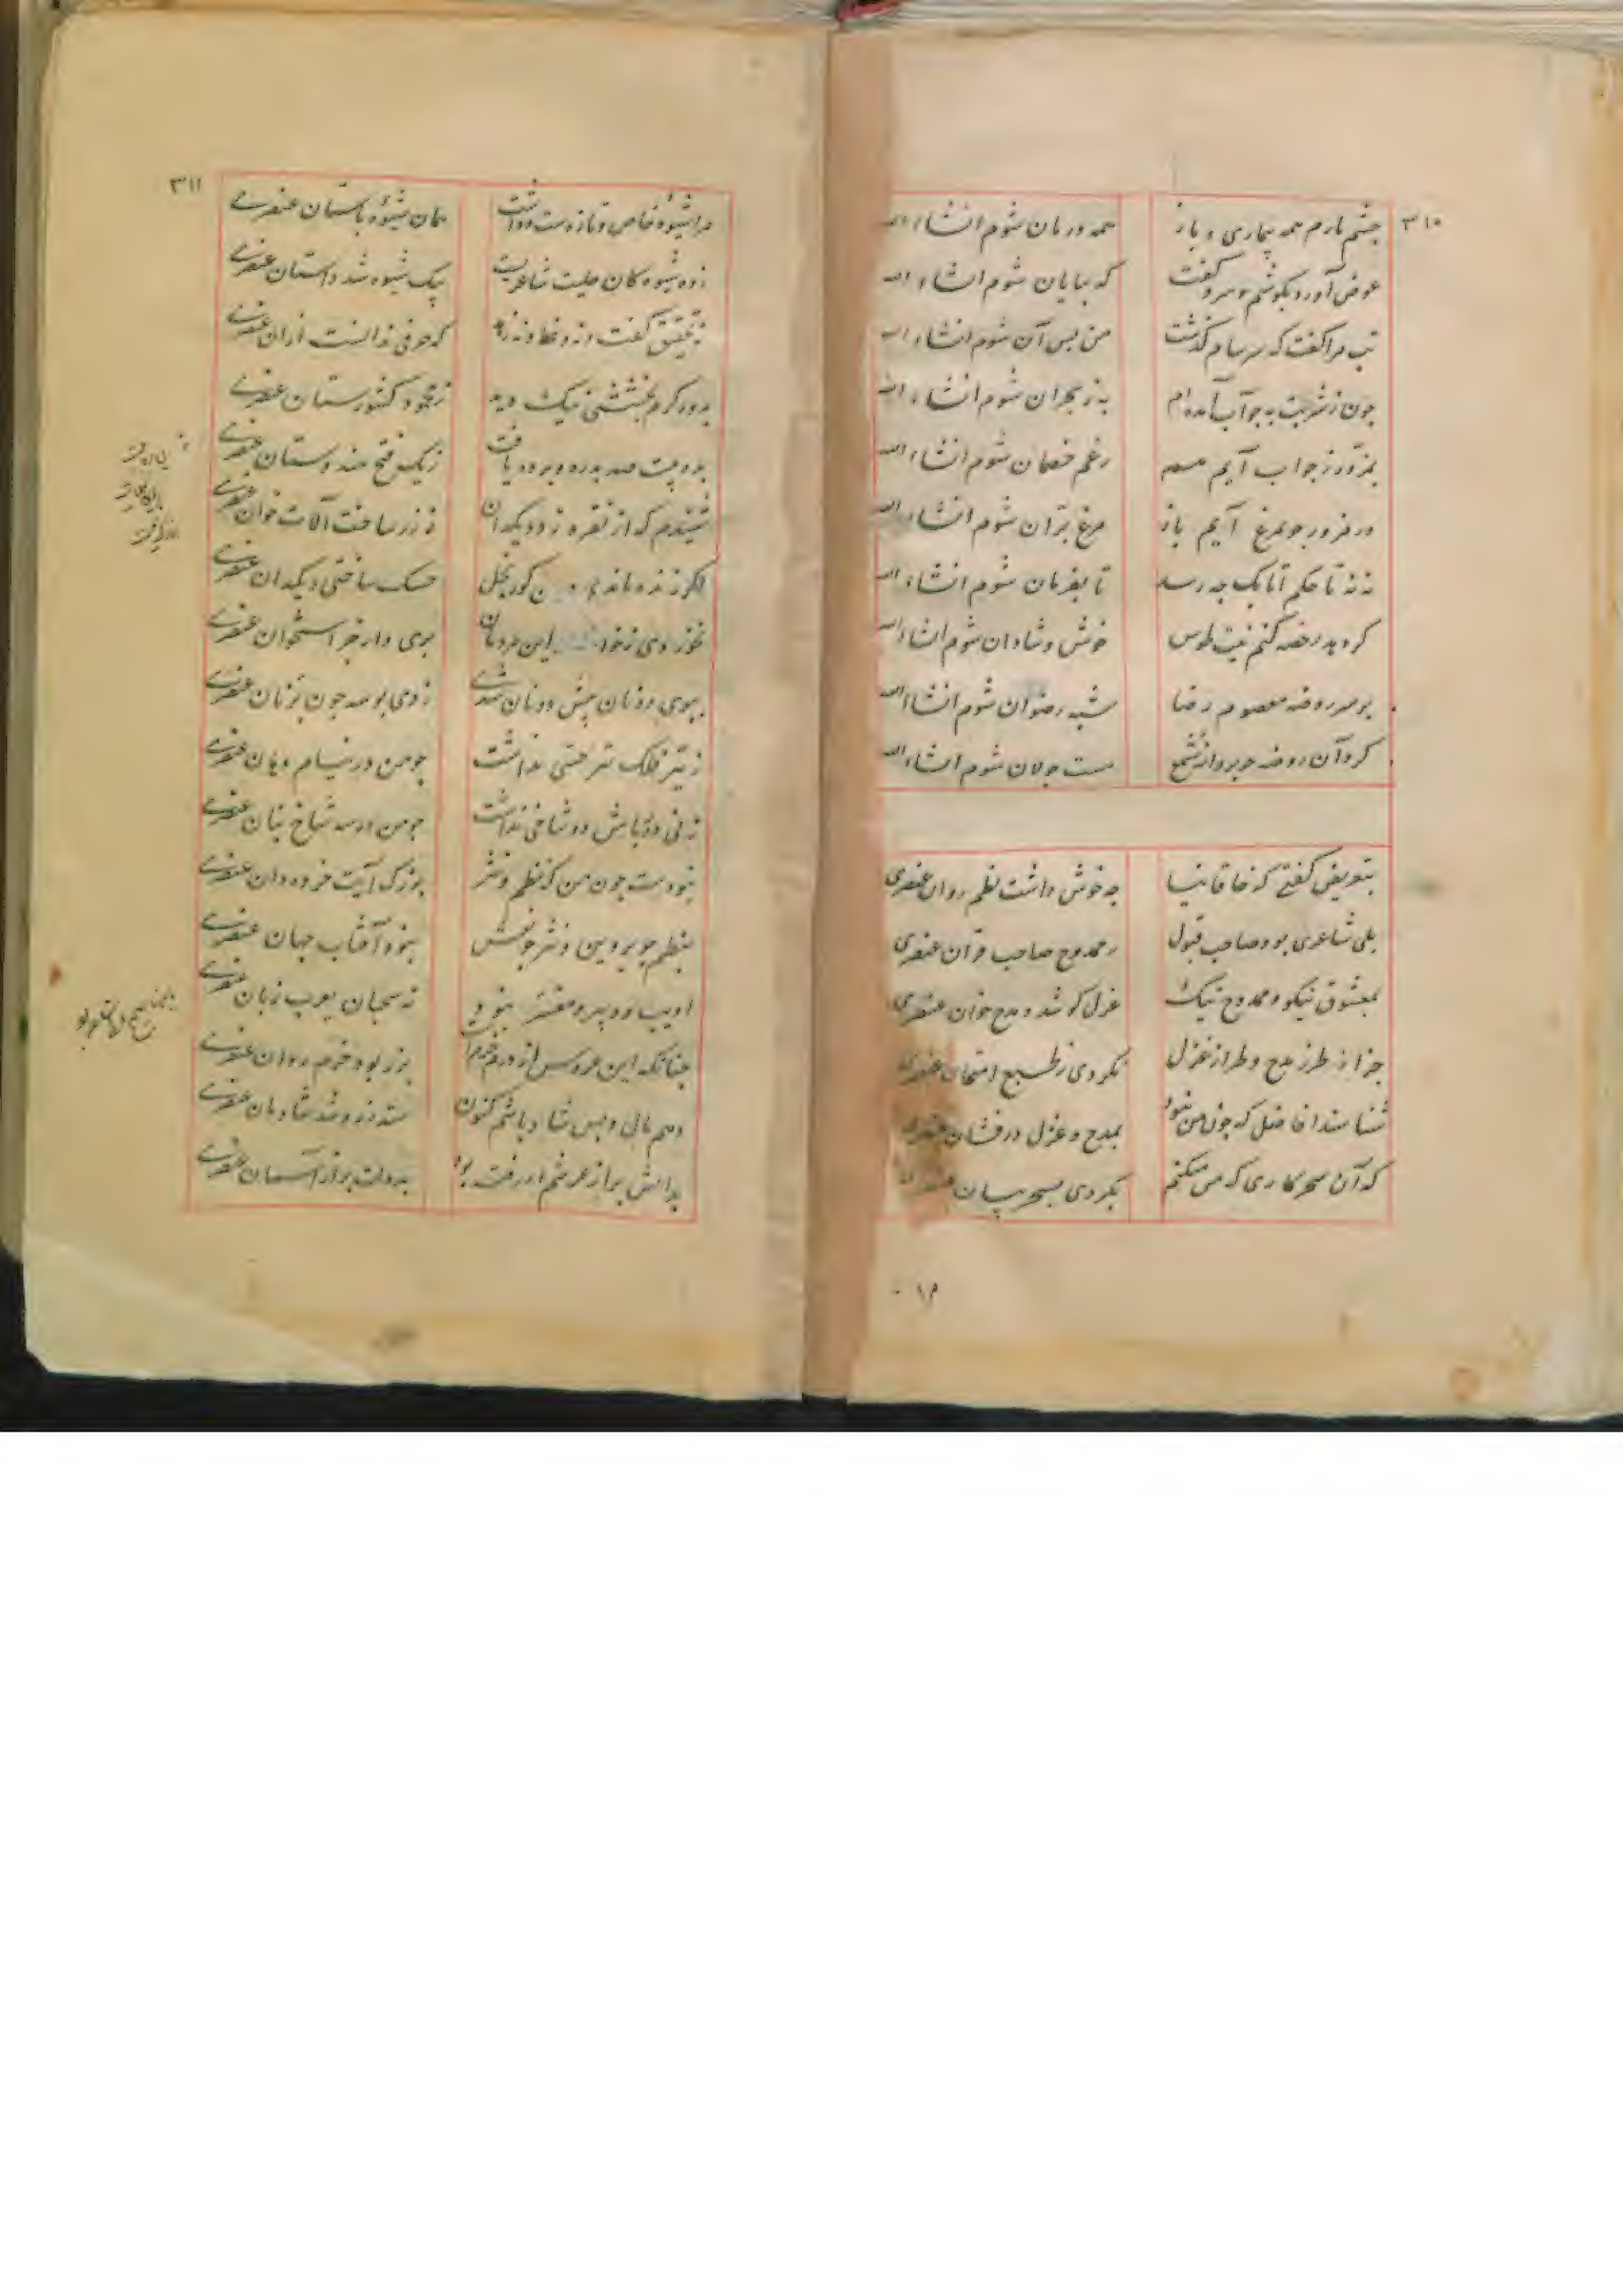 ۳۱۰
چشم یارم همه بیماری و باز همه درمان شوم انشاء الله
عوض آورد بکوشم سر و گفت که بپایان شوم انشاء الله
تب مرا گفت که سرسام گذشت من پس آن شوم انشاء الله
چون ز شربت به جو آب آمده‌ام به ز بحران شوم انشاء الله
بمزور ز جواب آیم همه رغم خصمان شوم انشاء الله
ور مزور جو بمرغ آیم باز مرغ بران شوم انشاء الله
نه نه تا حکم اتابک چه رسد تا بفرمان شوم انشاء الله
کر دهد رخصه کنم نیت طوس خوش و شادان شوم انشاء الله
بر سر روضه معصوم رضا شبه رضوان شوم انشاء الله
کرد آن روضه جو پروانه شمع مست جولان شوم انشاء الله
بتعریض گفتی که خاقانیا چه خوش داشت نظم روان عنصری
بلی شاعری بود صاحب قبول ز ممدوح صاحب قران عنصری
بمعشوق نیکو و ممدوح نیک غزل کو شد و مدح خوان عنصری
جز از طرز مدح و طراز غزل نکردی ز طبع امتحان عنصری
شناسند افاضل که چون من نبود بمدح و غزل درفشان عنصری
که آن سحر کاری که من میکنم نکردی بسحر بیان عنصری
۳۱۱
مرا شیوه خاص و تازه‌ست و داشت همان شیوه باستان عنصری
ز ده شیوه کان حلیت شاعریست بیک شیوه شد داستان عنصری
نه تحقیق گفت و نه وعظ و نه زهد که حرفی ندانست از ان عنصری
به دور کرم بخششی نیک دید ز محمود کشورستان عنصری
بده بیت صد بدره و برده یافت ز یک فتح هندوستان عنصری
شنیدم که از نقره زد دیکدان ز زر ساخت آلات خوان عنصری
اگر زنده ماندی کور بخل خسک ساختی دیکدان عنصری
نخوردی ز خوان این مردمان پری وار جز استخوان عنصری
ببوی دو نان پیش دونان شدی زدی بوسه چون پر نان عنصری
ز تیر فلک تیر چستی نداشت چو من در نیام دهان عنصری
ز نی دور باش دو شاخی نداشت چو من در سه شاخ بنان عنصری
نبودست چون من که نظم و نثر بزرگ آیت خرده‌دان عنصری
بنظم چو پروین و نثر چو نعش نبود آفتاب جهان عنصری
ادیب و دبیر و مفسر نبود نه سحبان یعرب زبان عنصری
چنانکه این عروس از درم خرم است بزر بود خرم روان عنصری
دهم مال و پس شاد باشم کنون ستد زر و شد شادمان عنصری
بدانش بر از عرشم ار رفت بود بدولت بر از آسمان عنصری